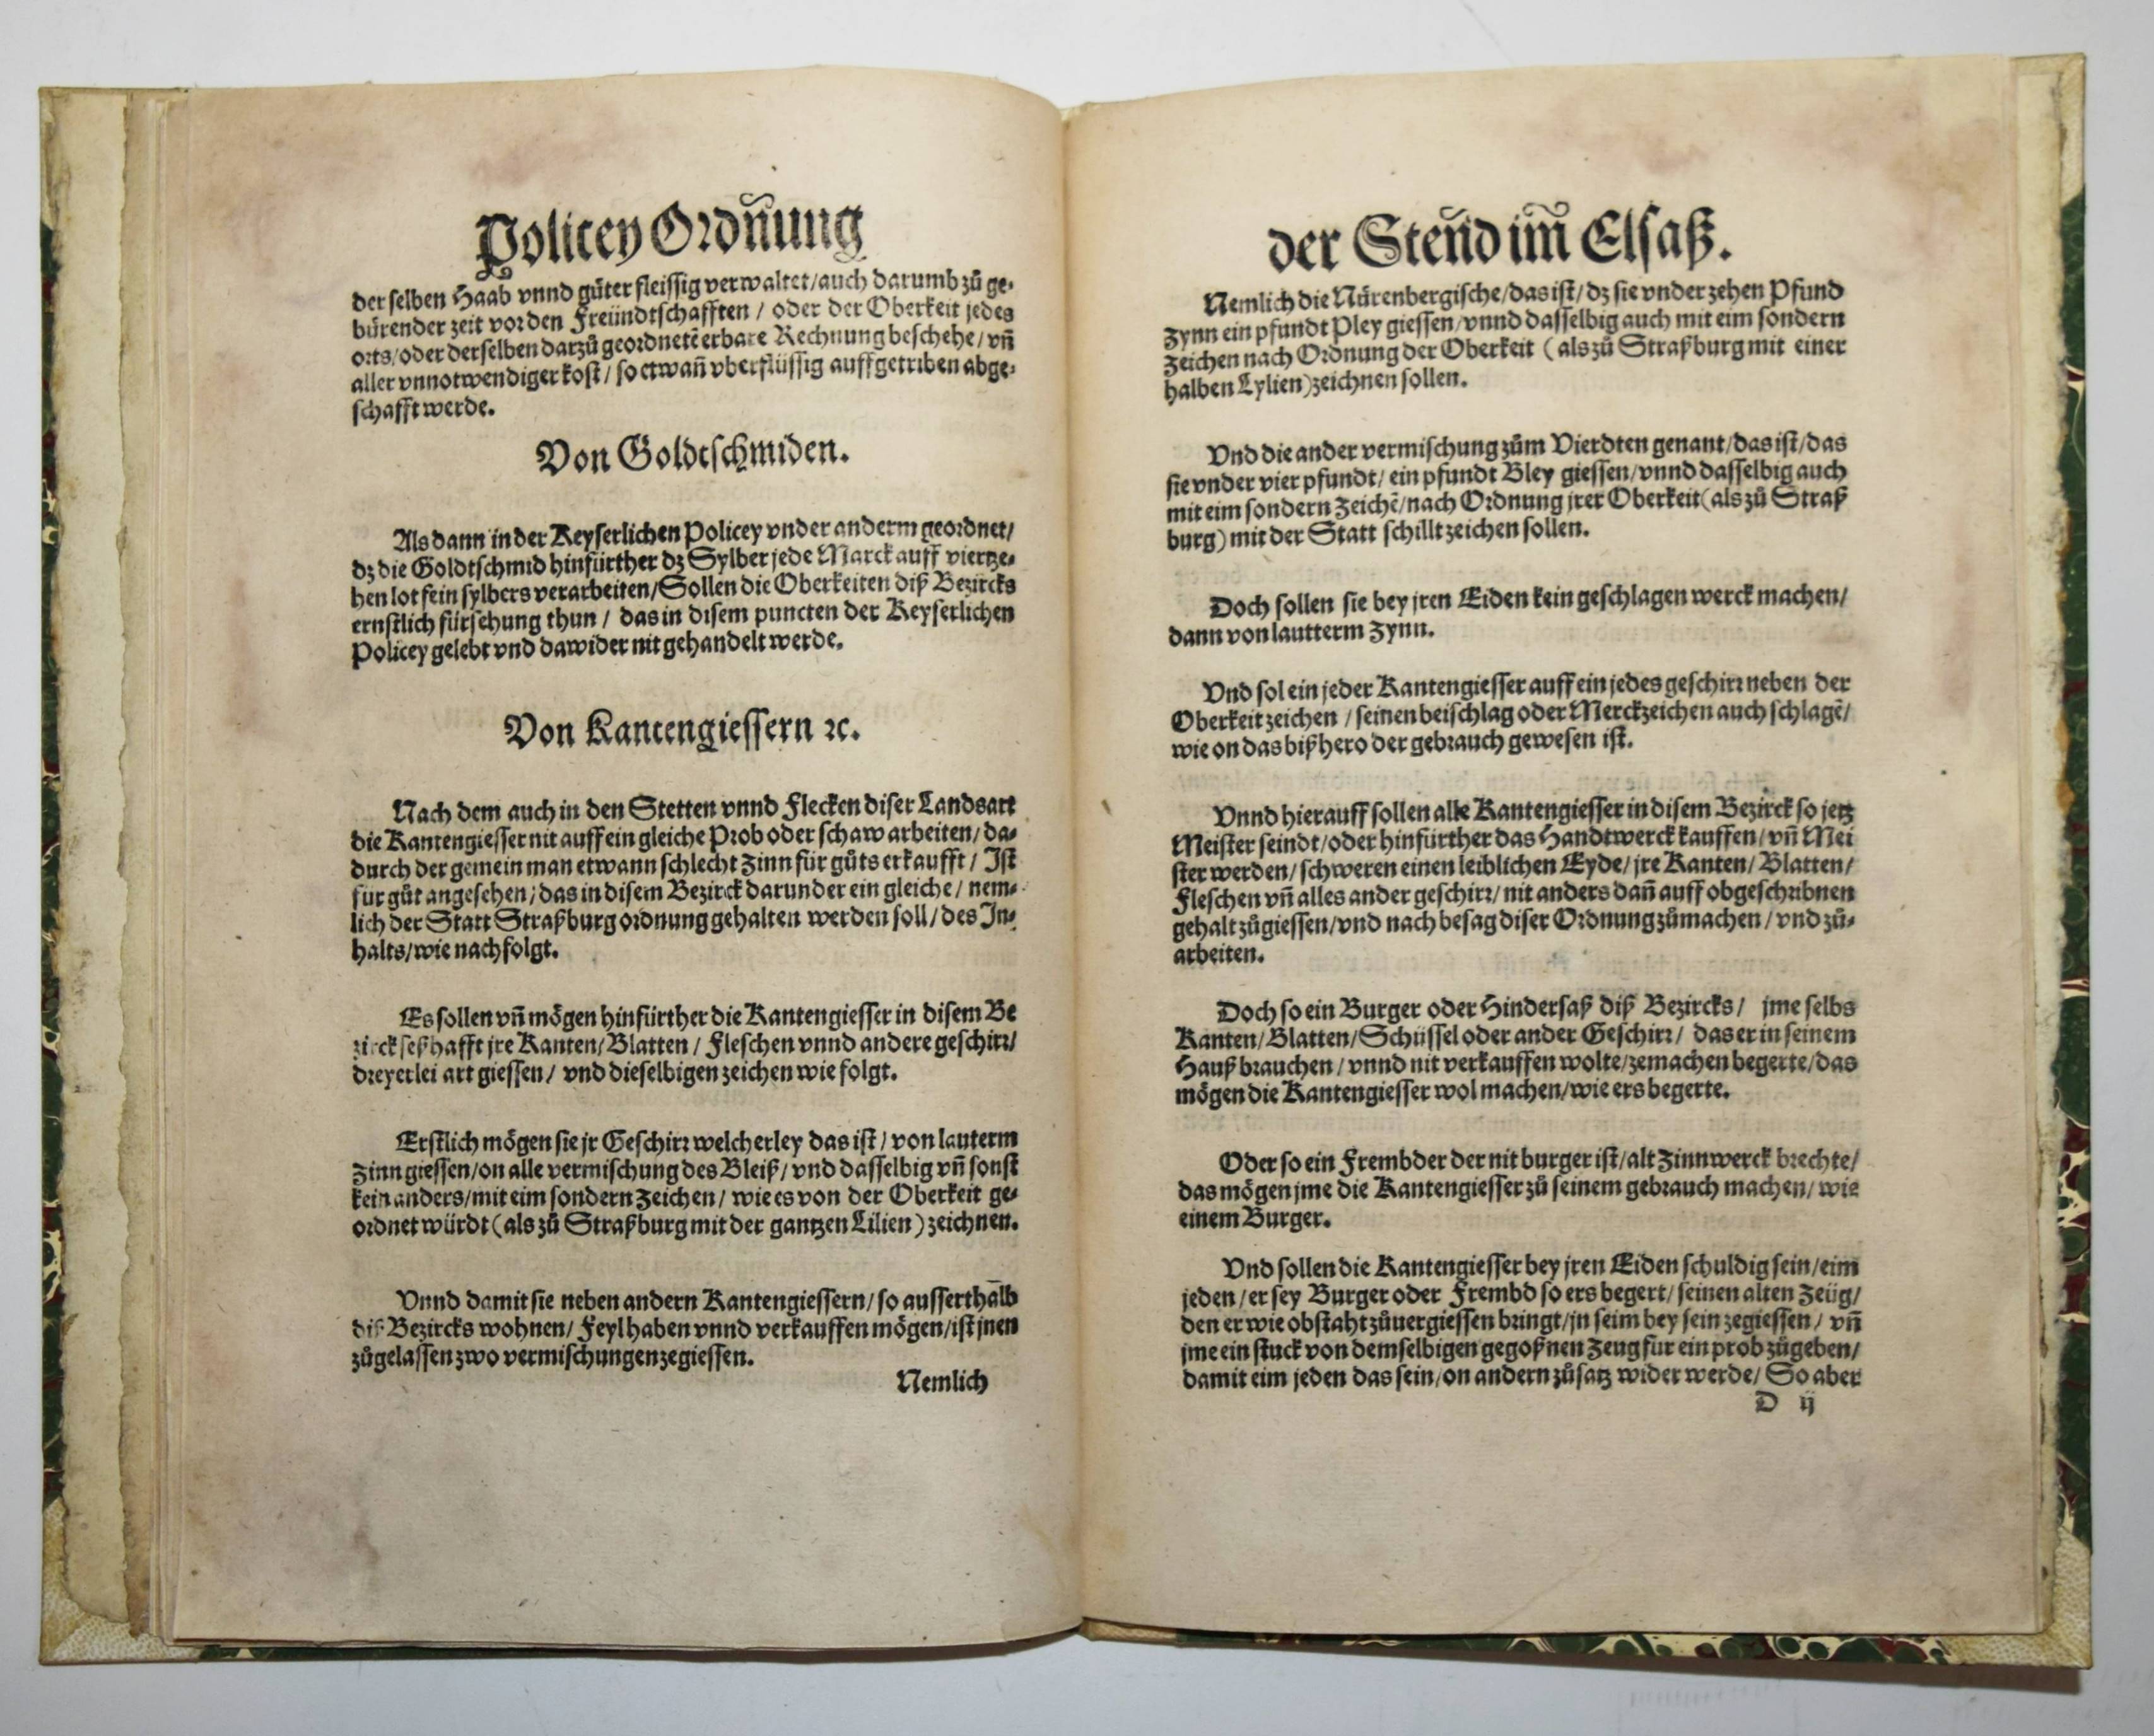 Policey Ordñung
der selben Haab vnnd güter fleissig verwaltet/auch darumb zů ge-
bürender zeit vor den Freündtschafften / oder der Oberkeit jedes
orts/oder derselben darzů geordnetē erbare Rechnung beschehe/ vñ
aller vnnotwendiger kost/ so etwañ vberflüssig auffgetriben abge-
schafft werde.
Von Goldtschmiden.
Als dann in der Keyserlichen Policey vnder anderm geordnet/
dz die Goldtschmid hinfürther dz Sylber jede Marck auff viertze-
hen lot fein sylbers verarbeiten/Sollen die Oberkeiten diß Bezircks
ernstlich fürsehung thun / das in disem puncten der Keyserlichen
Policey gelebt vnd dawider nit gehandelt werde.
Von Kantengiessern ꝛc.
Nach dem auch in den Stetten vnnd Flecken diser Landsart
die Kantengiesser nit auff ein gleiche Prob oder schaw arbeiten/ da-
durch der gemein man etwann schlecht Zinn für gůts erkaufft / Ist
für gůt angesehen/ das in disem Bezirck darunder ein gleiche/ nem-
lich der Statt Straßburg ordnung gehalten werden soll/ des In-
halts/wie nachfolgt.
Es sollen vñ mögen hinfürther die Kantengiesser in disem Be
zirck seßhafft jre Kanten/Blatten / Fleschen vnnd andere geschirr/
dreyerlei art giessen/ vnd dieselbigen zeichen wie folgt.
Erstlich mögen sie jr Geschirr welcherley das ist/ von lauterm
Zinn giessen/on alle vermischung des Bleiß/ vnd dasselbig vñ sonst
kein anders/mit eim sondern Zeichen/ wie es von der Oberkeit ge-
ordnet würdt (als zů Straßburg mit der gantzen Lilien) zeichnen.
Vnnd damit sie neben andern Kantengiessern/ so ausserthalb
diß Bezircks wohnen/ Feyl haben vnnd verkauffen mögen/ist jnen
zůgelassen zwo vermischungen zegiessen.
Nemlich
der Steñd im̃ Elsaß.
Nemlich die Nürenbergische/das ist/ dz sie vnder zehen Pfund
Zynn ein pfundt Pley giessen/vnnd dasselbig auch mit eim sondern
Zeichen nach Ordnung der Oberkeit (als zů Straßburg mit einer
halben Lylien) zeichnen sollen.
Vnd die ander vermischung zům Vierdten genant/das ist/das
sie vnder vier pfundt/ ein pfundt Bley giessen/vnnd dasselbig auch
mit eim sondern Zeichē/nach Ordnung jrer Oberkeit (als zů Straß
burg) mit der Statt schillt zeichen sollen.
Doch sollen sie bey jren Eiden kein geschlagen werck machen/
dann von lautterm Zynn.
Vnd sol ein jeder Kantengiesser auff ein jedes geschirr neben der
Oberkeit zeichen / seinen beischlag oder Merckzeichen auch schlagē/
wie on das bißhero der gebrauch gewesen ist.
Vnnd hierauff sollen alle Kantengiesser in disem Bezirck so jetz
Meister seindt/oder hinfürther das Handtwerck kauffen/ vñ Mei
ster werden/ schweren einen leiblichen Eyde/ jre Kanten/ Blatten/
Fleschen vñ alles ander geschirr/ nit anders dañ auff obgeschribnen
gehalt zůgiessen/vnd nach besag diser Ordnung zůmachen / vnd zů-
arbeiten.
Doch so ein Burger oder Hindersaß diß Bezircks/ jme selbs
Kanten/Blatten/Schüssel oder ander Geschirr/ das er in seinem
Hauß brauchen / vnnd nit verkauffen wolte/zemachen begerte/das
mögen die Kantengiesser wol machen/wie ers begerte.
Oder so ein Frembder der nit burger ist/alt Zinnwerck brechte/
das mögen jme die Kantengiesser zů seinem gebrauch machen/ wie
einem Burger.
Vnd sollen die Kantengiesser bey jren Eiden schuldig sein/eim
jeden/er sey Burger oder Frembd so ers begert/ seinen alten Zeüg/
den er wie obstaht zůuergiessen bringt/jn seim bey sein zegiessen / vñ
jme ein stuck von demselbigen gegoßnen Zeug für ein prob zůgeben/
damit eim jeden das sein/on andern zůsatz wider werde/ So aber
D ij